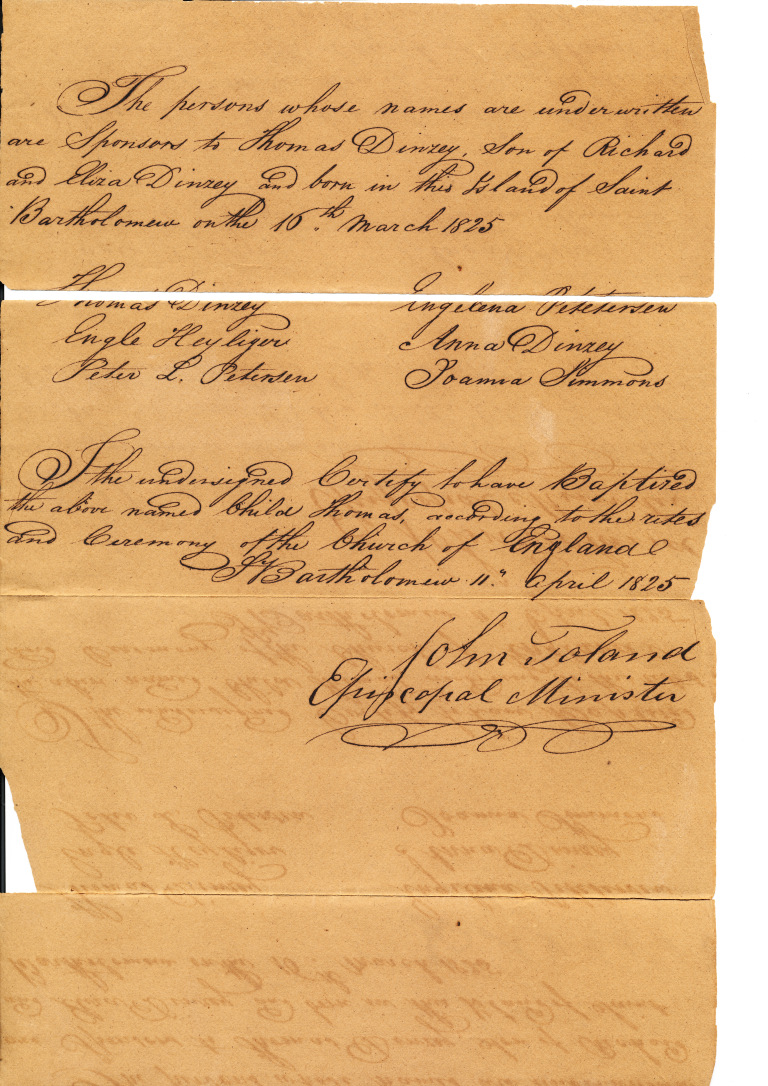 The persons whose names are underwritten
are Sponsors to Thomas Dinzey, Son of Richard
and Eliza Dinzey and born in this Island of Saint
Bartholomew on the 16th March 1825
Thomas Dinzey Engelena Petetersen
Engle Heyliger Anna Dinzey
Peter L. Petersen Joanna Simmons
I the undersigned Certify to have Baptized
the above named Childe Thomas, according to the rites
and Ceremony of the Church of England
St Bartholomew 11" April 1825
John Toland
Episcopal Minister